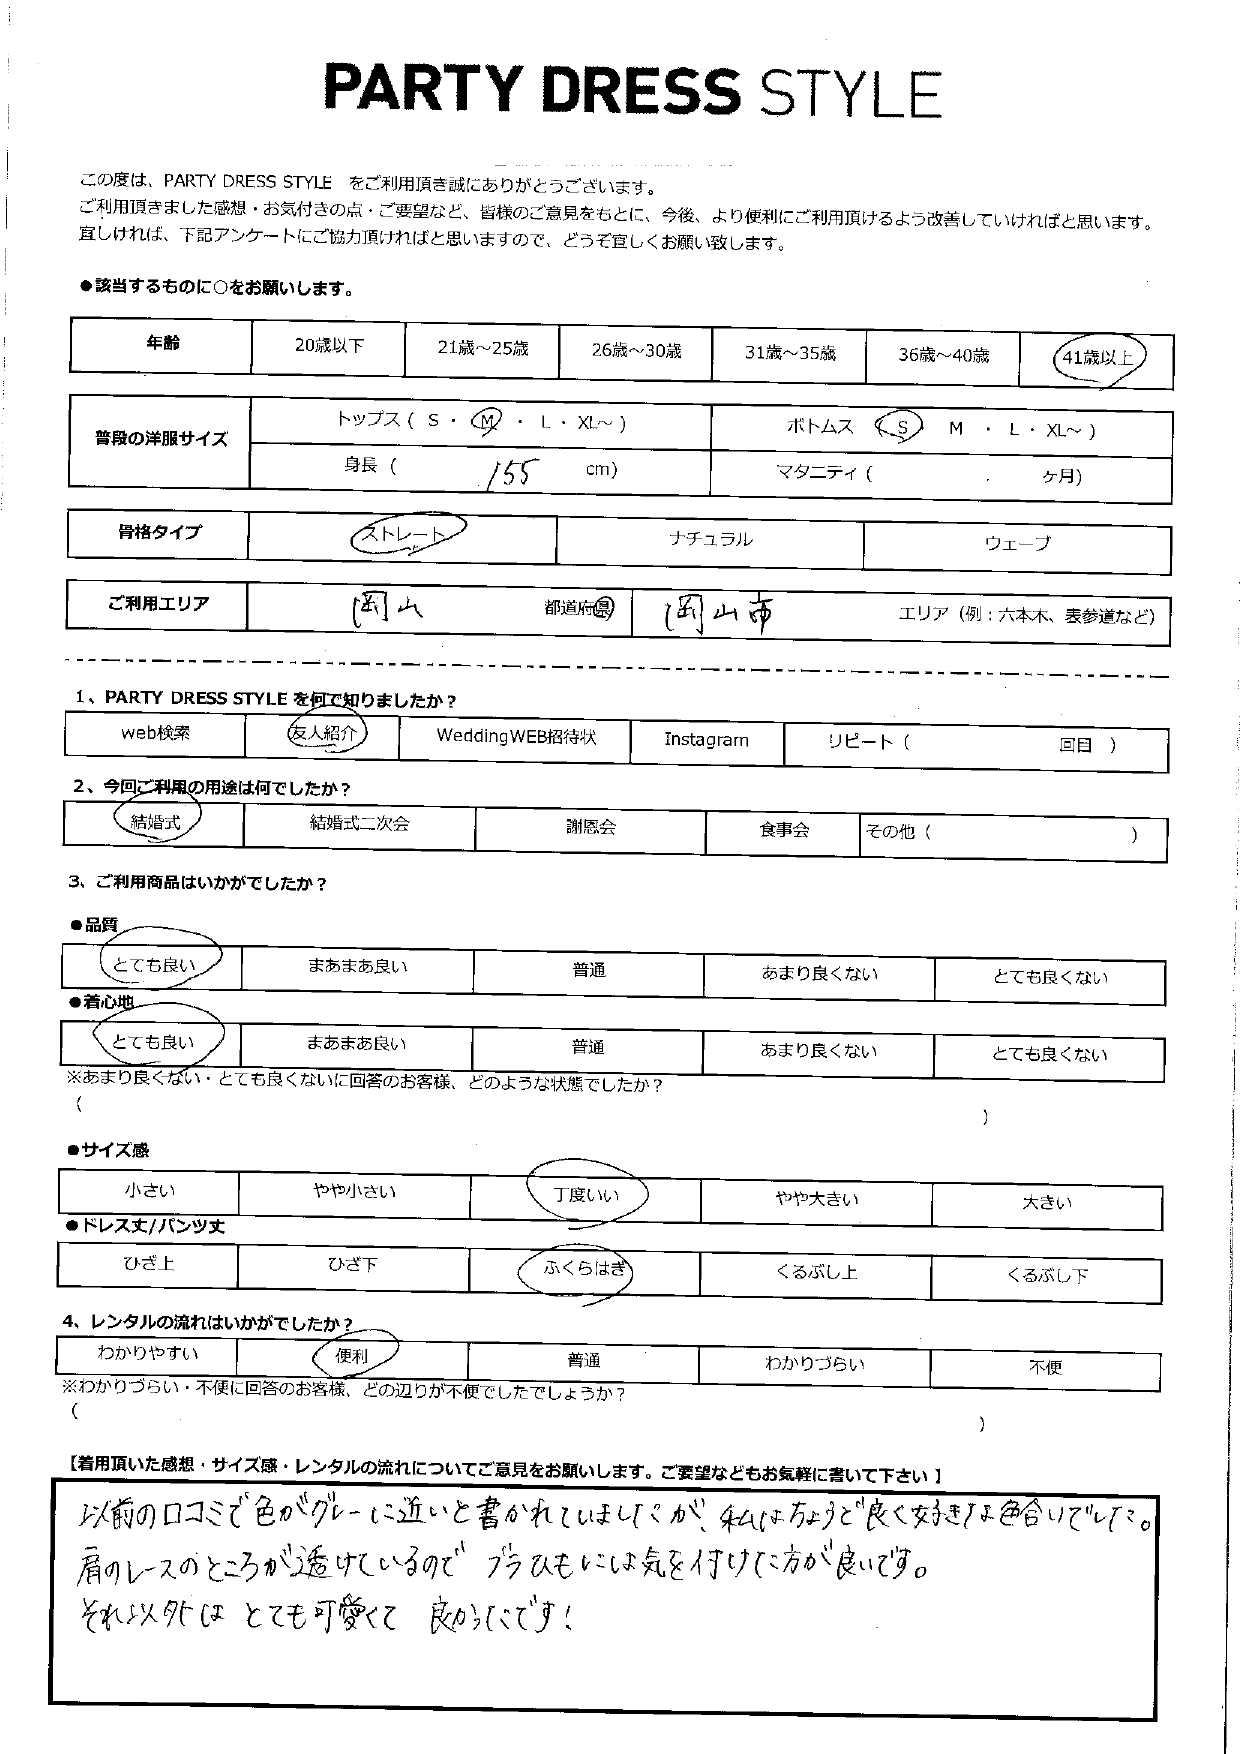 PARTY DRESS STYLE
この度は、PARTY DRESS STYLE をご利用頂き誠にありがとうございます。
ご利用頂きました感想・お気付きの点・ご要望など、皆様のご意見をもとに、今後、より便利にご利用頂けるよう改善していければと思います。
宜しければ、下記アンケートにご協力頂ければと思いますので、どうぞ宜しくお願い致します。
●該当するものに○をお願いします。
年齢 20歳以下 21歳～25歳 26歳～30歳 31歳～35歳 36歳～40歳 41歳以上
普段の洋服サイズ トップス ( S ・ M ・ L ・ XL～ ) ボトムス ( S M ・ L ・ XL～ )
身長 ( 155 cm) マタニティ ( ヶ月)
骨格タイプ ストレート ナチュラル ウェーブ
ご利用エリア 岡山 都道府県 岡山市 エリア（例：六本木、表参道など）
1、PARTY DRESS STYLE を何で知りましたか？
web検索 友人紹介 WeddingWEB招待状 Instagram リピート（ 回目 ）
2、今回ご利用の用途は何でしたか？
結婚式 結婚式二次会 謝恩会 食事会 その他（ ）
3、ご利用商品はいかがでしたか？
●品質
とても良い まあまあ良い 普通 あまり良くない とても良くない
●着心地
とても良い まあまあ良い 普通 あまり良くない とても良くない
※あまり良くない・とても良くないに回答のお客様、どのような状態でしたか？
( )
●サイズ感
小さい やや小さい 丁度いい やや大きい 大きい
●ドレス丈/パンツ丈
ひざ上 ひざ下 ふくらはぎ くるぶし上 くるぶし下
4、レンタルの流れはいかがでしたか？
わかりやすい 便利 普通 わかりづらい 不便
※わかりづらい・不便に回答のお客様、どの辺りが不便でしたでしょうか？
( )
【着用頂いた感想・サイズ感・レンタルの流れについてご意見をお願いします。ご要望などもお気軽に書いて下さい】
以前の口コミで色がグレーに近いと書かれていましたが、私はちょうど良く好きな色合いでした。
肩のレースのところが透けているので ブラひもには気を付けた方が良いです。
それ以外は とても可愛くて 良かったです！